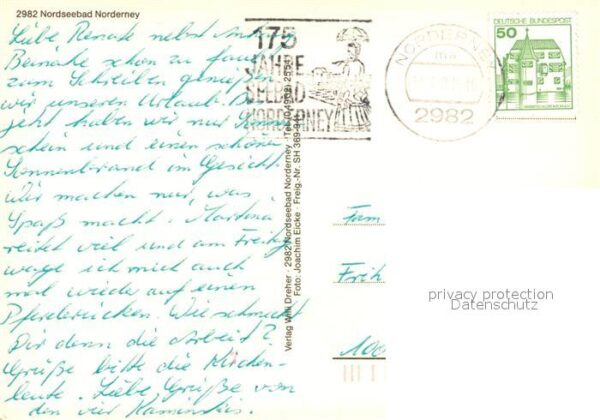 2982 Nordseebad Norderney
Liebe Renate nebst Anhang
Beinahe schon zu faul
zum Schreiben genießen
wir unseren Urlaub. Bis
jetzt haben wir nur Sonnen
schein und einen schönen
Sonnenbrand im Gesicht.
Wir machen nur, was
Spaß macht. Martina
reitet viel und am Freitag
wage ich mich auch
mal wieder auf einen
Pferderücken. Wie schmeckt
Dir denn die Arbeit?
Grüße bitte die Kirchen-
leute. Liebe Grüße von
den vier
175
JAHRE
SEEBAD
NORDERNEY
NORDERNEY
2982
DEUTSCHE BUNDESPOST
50
Verlag Willi Dreher · 2982 Nordseebad Norderney · Tel. (04932)
Foto: Joachim Eicke · Freig.-Nr. SH 369-
Fam
Früh
100
privacy protection
Datenschutz